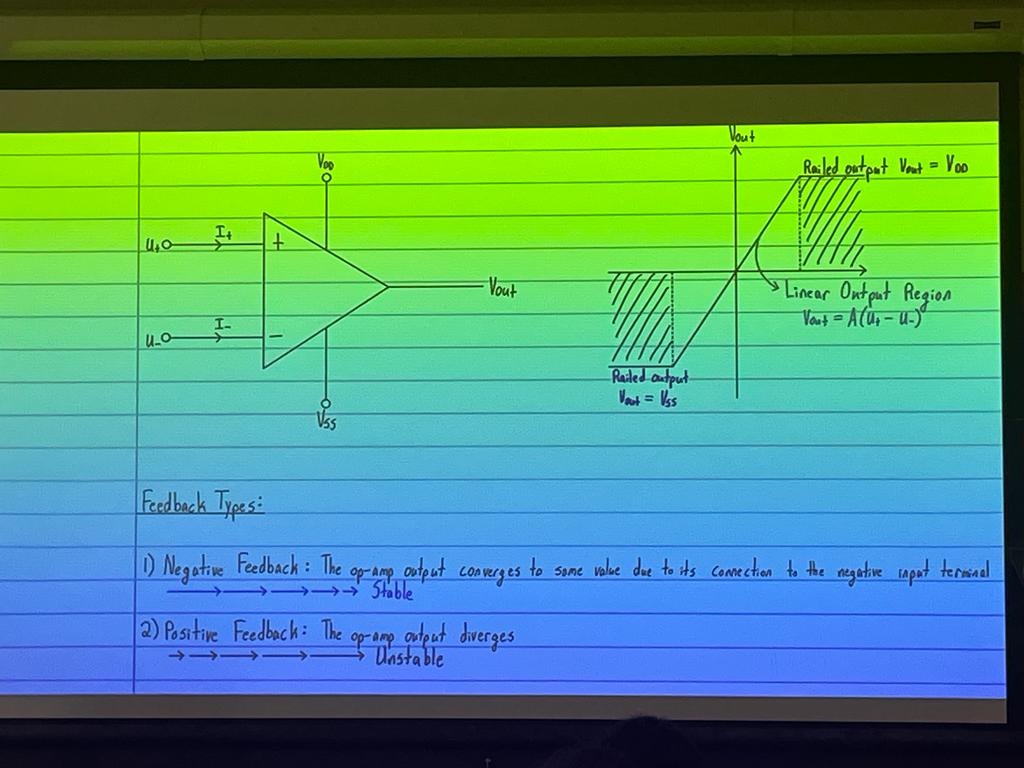 V_DD
u₊
I₊
+
u₋
I₋
−
Vout
V_SS
Vout
Railed output Vout = V_DD
Linear Output Region
Vout = A(u₊ − u₋)
Railed output
Vout = V_SS
Feedback Types:
1) Negative Feedback: The op-amp output converges to some value due to its connection to the negative input terminal
→ → → → → Stable
2) Positive Feedback: The op-amp output diverges
→ → → → → Unstable